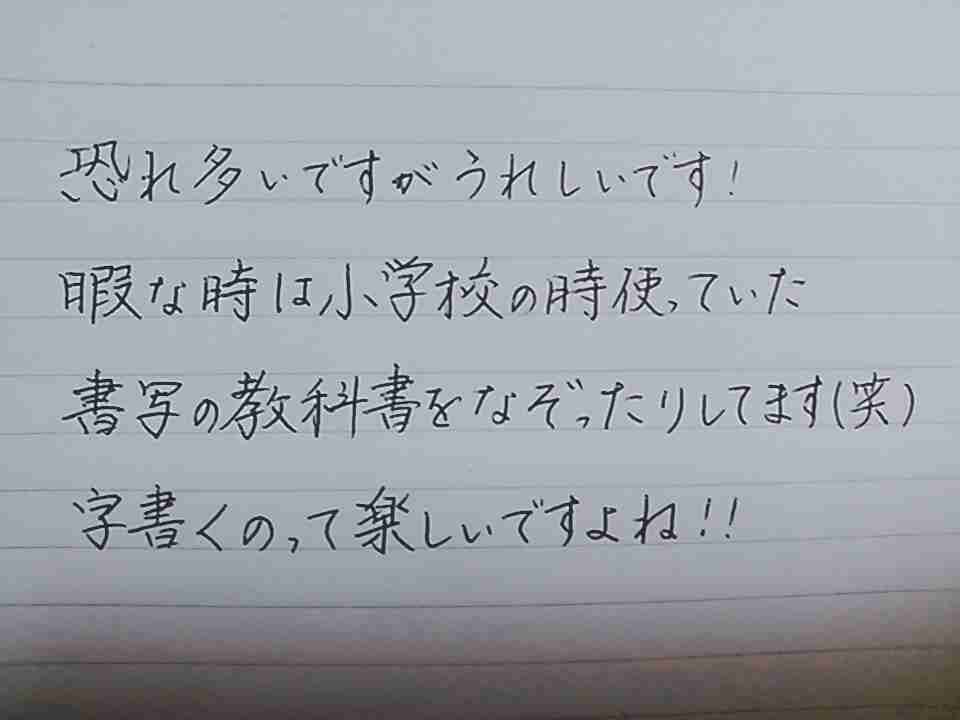 恐れ多いですがうれしいです!
暇な時は小学校の時使っていた
書写の教科書をなぞったりしてます(笑)
字書くのって楽しいですよね!!